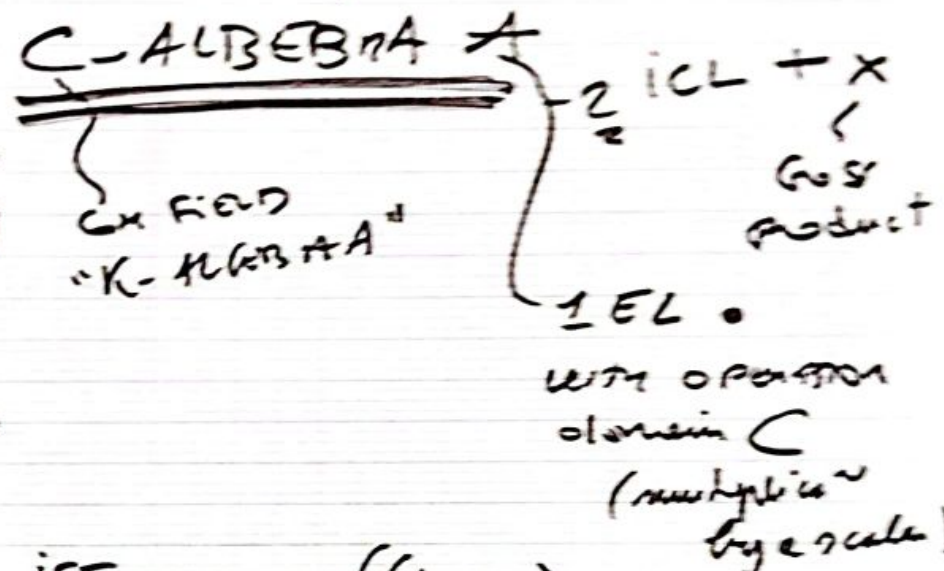 C-ALBEBRA A
2 iCL + x
product
FIELD
"K-ALGEBRA"
1 EL •
WITH OPERATION
domain C
(multiplica~
by a scalar)